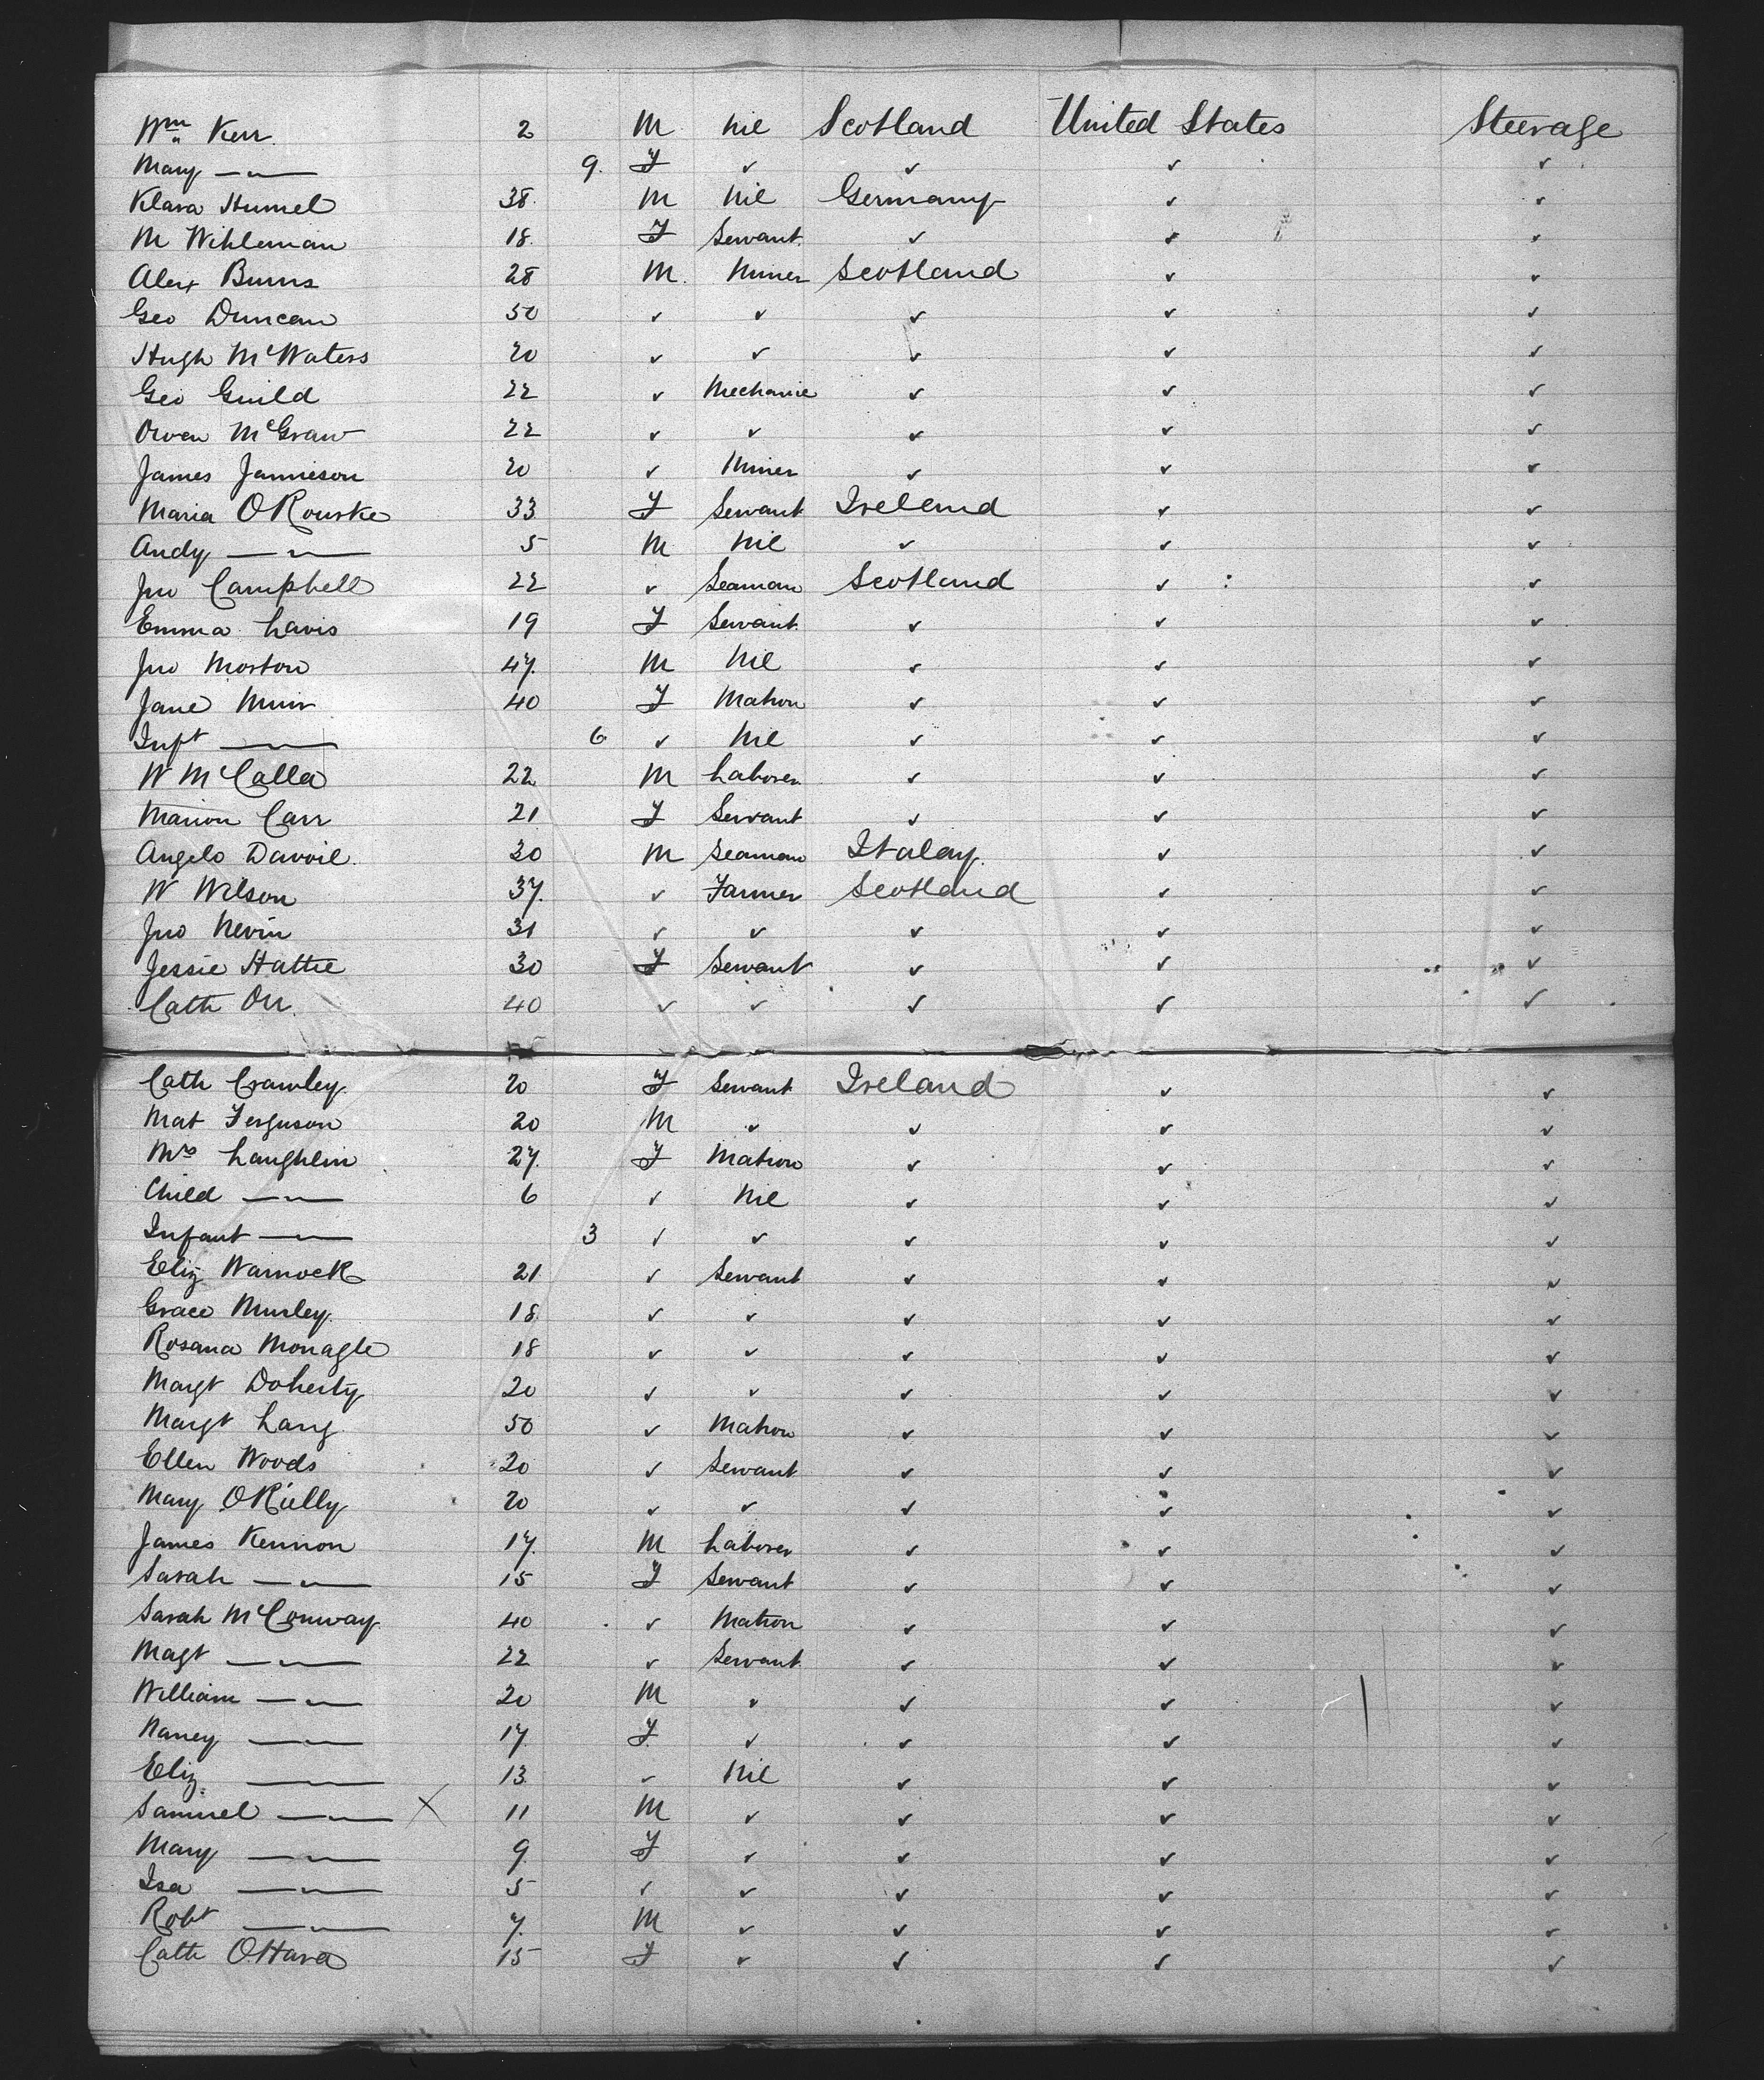 Wm Kerr 2 M Nil Scotland United States Steerage
Mary —"— 9 F ✓ ✓ ✓ ✓
Klara Humel 38 M Nil Germany ✓ ✓
M Wihleman 18 F Servant ✓ ✓ ✓
Alex Burns 28 M Miner Scotland ✓ ✓
Geo Duncan 50 ✓ ✓ ✓ ✓ ✓
Hugh McWaters 20 ✓ ✓ ✓ ✓ ✓
Geo Guild 22 ✓ Mechanic ✓ ✓ ✓
Owen McGraw 22 ✓ ✓ ✓ ✓ ✓
James Jamieson 20 ✓ Miner ✓ ✓ ✓
Maria O'Rourke 33 F Servant Ireland ✓ ✓
Andy —"— 5 M Nil ✓ ✓ ✓
Jno Campbell 22 ✓ Seaman Scotland ✓ ✓
Emma Lavis 19 F Servant ✓ ✓ ✓
Jno Morton 47 M Nil ✓ ✓ ✓
Jane Muir 40 F Matron ✓ ✓ ✓
Inft —"— 6 ✓ Nil ✓ ✓ ✓
W McCalla 22 M Laborer ✓ ✓ ✓
Marion Carr 21 F Servant ✓ ✓ ✓
Angelo 30 M Seaman Italay ✓ ✓
W Wilson 37 ✓ Farmer Scotland ✓ ✓
Jno Nevin 31 ✓ ✓ ✓ ✓ ✓
Jessie Hattie 30 F Servant ✓ ✓ ✓
Cath Orr 40 ✓ ✓ ✓ ✓ ✓
Cath Crawley 20 F Servant Ireland ✓ ✓
Mat Ferguson 20 M ✓ ✓ ✓ ✓
Mrs Laughlin 27 F Matron ✓ ✓ ✓
Child —"— 6 ✓ Nil ✓ ✓ ✓
Infant —"— 3 ✓ ✓ ✓ ✓ ✓
Eliz Warnock 21 ✓ Servant ✓ ✓ ✓
Grace Murley 18 ✓ ✓ ✓ ✓ ✓
Rosana Monagle 18 ✓ ✓ ✓ ✓ ✓
Margt Doherty 20 ✓ ✓ ✓ ✓ ✓
Margt Lang 50 ✓ Matron ✓ ✓ ✓
Ellen Woods 20 ✓ Servant ✓ ✓ ✓
Mary O'Rielly 20 ✓ ✓ ✓ ✓ ✓
James Kennon 17 M Laborer ✓ ✓ ✓
Sarah —"— 15 F Servant ✓ ✓ ✓
Sarah McConway 40 ✓ Matron ✓ ✓ ✓
Magt —"— 22 ✓ Servant ✓ ✓ ✓
William —"— 20 M ✓ ✓ ✓ ✓
Nancy —"— 17 F ✓ ✓ ✓ ✓
Eliz —"— 13 ✓ Nil ✓ ✓ ✓
Samuel —"— X 11 M ✓ ✓ ✓ ✓
Mary —"— 9 F ✓ ✓ ✓ ✓
Isa —"— 5 ✓ ✓ ✓ ✓ ✓
Robt —"— 7 M ✓ ✓ ✓ ✓
Cath O'Hara 15 F ✓ ✓ ✓ ✓